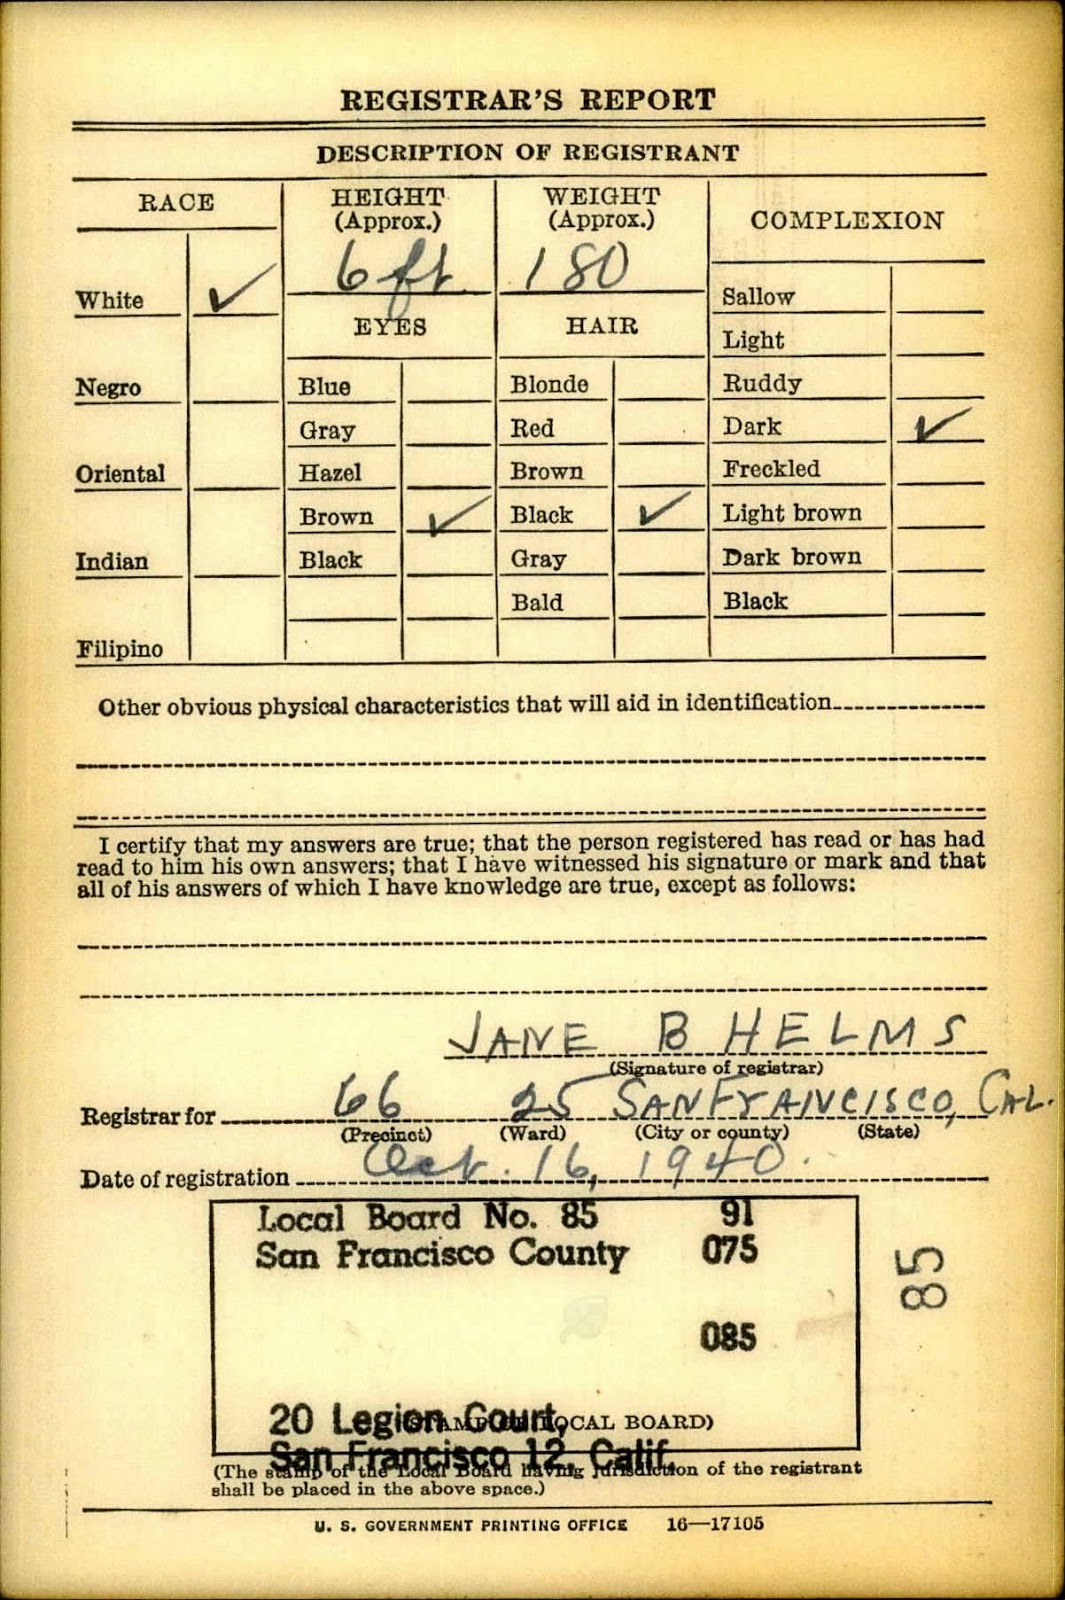 REGISTRAR'S REPORT
DESCRIPTION OF REGISTRANT
RACE
HEIGHT
(Approx.)
WEIGHT
(Approx.)
COMPLEXION
6 ft.
180
White ✓
EYES
HAIR
Sallow
Light
Negro
Blue
Blonde
Ruddy
Gray
Red
Dark ✓
Oriental
Hazel
Brown
Freckled
Brown ✓
Black ✓
Light brown
Indian
Black
Gray
Dark brown
Bald
Black
Filipino
Other obvious physical characteristics that will aid in identification
I certify that my answers are true; that the person registered has read or has had
read to him his own answers; that I have witnessed his signature or mark and that
all of his answers of which I have knowledge are true, except as follows:
JANE B HELMS
(Signature of registrar)
Registrar for 66 25 SAN FRANCISCO, CAL.
(Precinct) (Ward) (City or county) (State)
Date of registration Oct. 16, 1940.
Local Board No. 85 91
San Francisco County 075
85
085
20 Legion Court,
(STAMP OF LOCAL BOARD)
San Francisco 12, Calif.
(The stamp of the Local Board having jurisdiction of the registrant
shall be placed in the above space.)
U. S. GOVERNMENT PRINTING OFFICE 16—17105